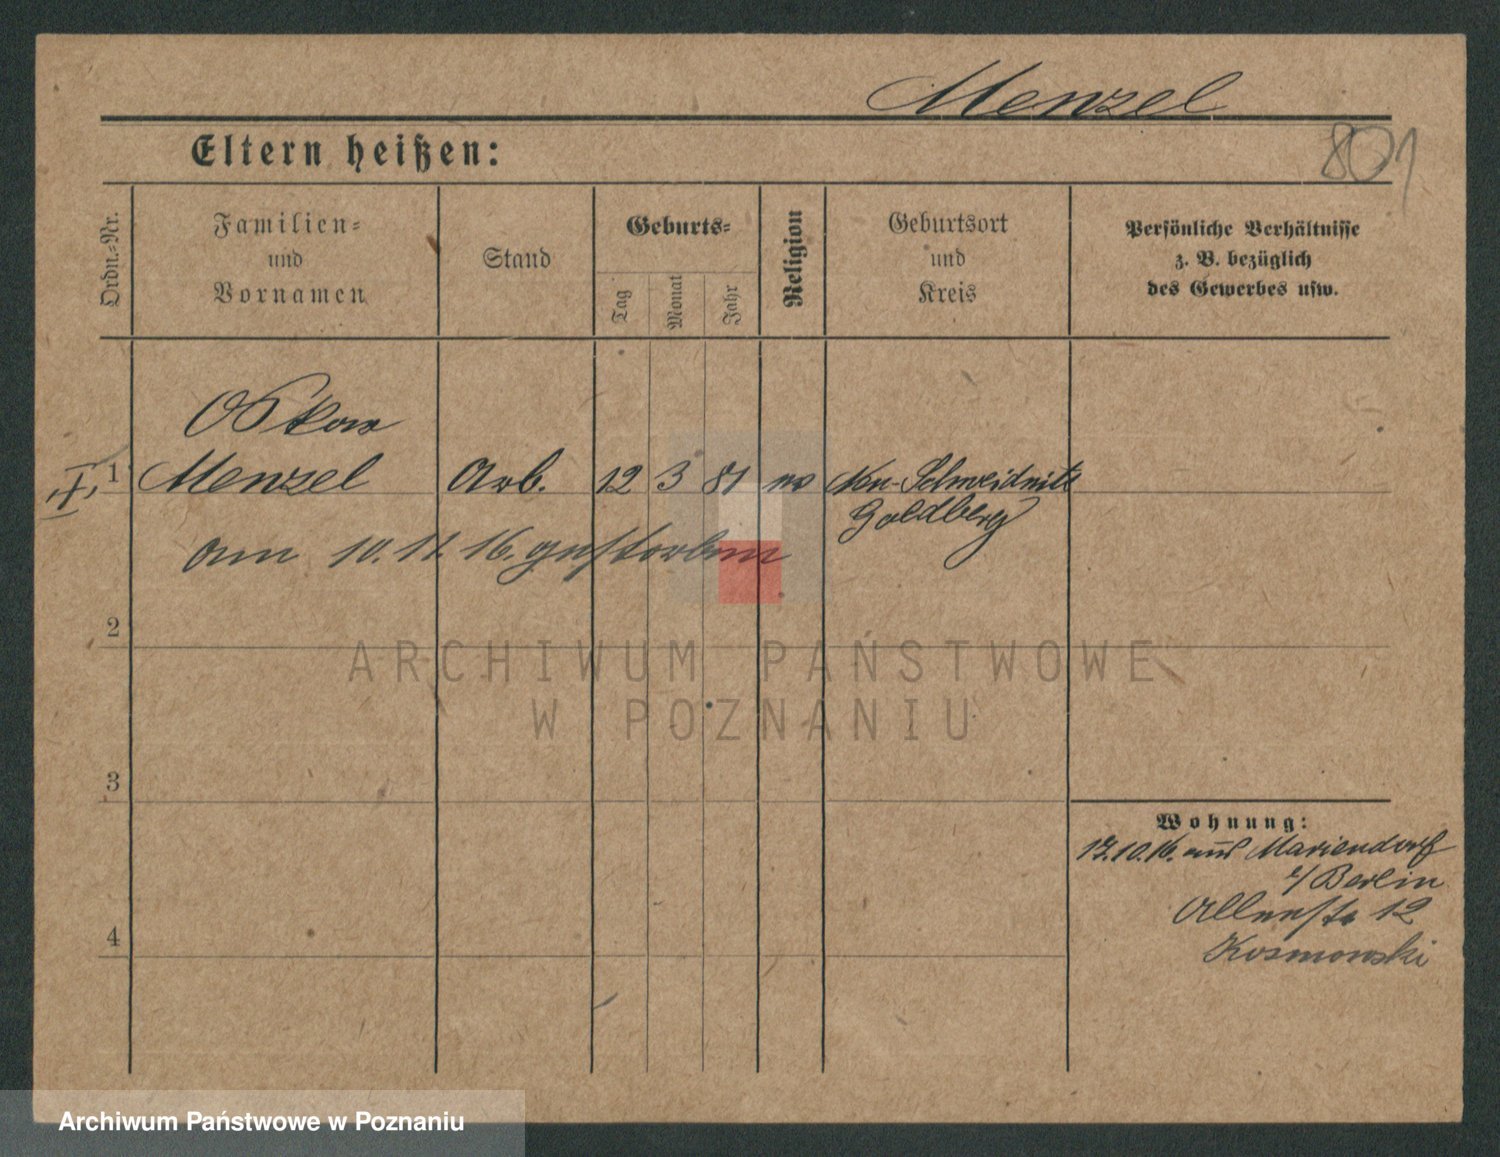 Menzel
801
Eltern heißen:
Ordn.-Nr.
Familien-
und
Vornamen
Stand
Geburts-
Tag
Monat
Jahr
Religion
Geburtsort
und
Kreis
Persönliche Verhältnisse
z. B. bezüglich
des Gewerbes usw.
Oskar
1 Menzel Arb. 12 3 81 Neu-Schweidnitz
Goldberg
am 10.11.16. gestorben
2
ARCHIWUM PAŃSTWOWE
W POZNANIU
3
Wohnung:
17.10.16. aus Mariendorf
b/Berlin
Alleestr 12
Kosmowski
4
Archiwum Państwowe w Poznaniu